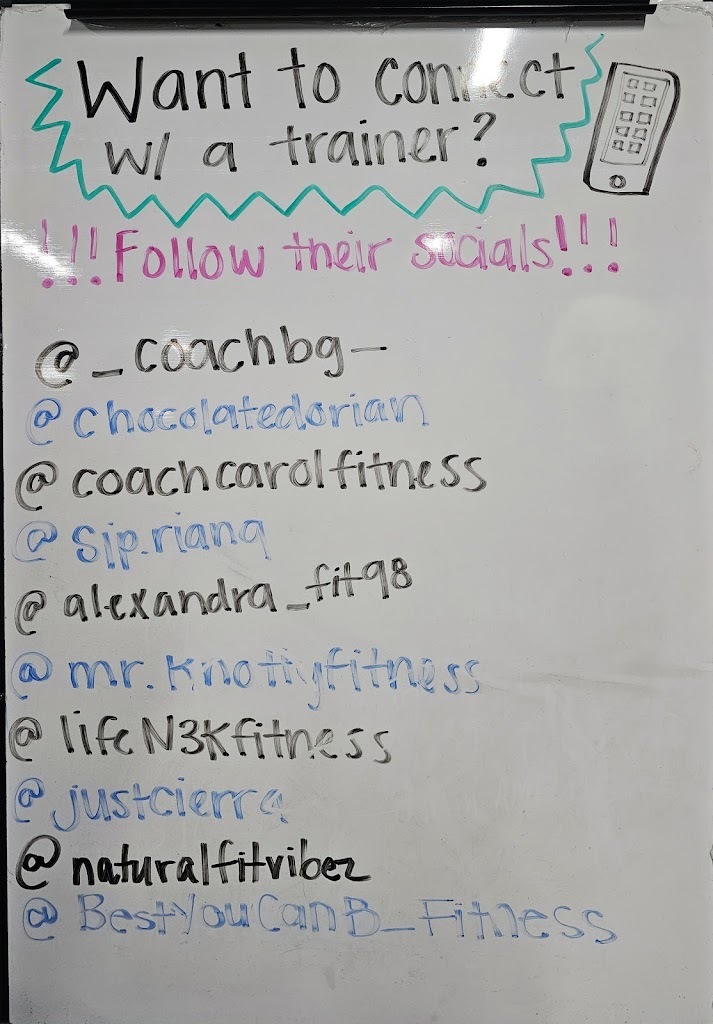 Want to connect
w/ a trainer?
!!!Follow their socials!!!
@_coachbg_
@chocolatedorian
@coachcarolfitness
@sip.riana
@alexandra_fit98
@mr.knottyfitness
@lifeN3Kfitness
@justcierra
@naturalfitvibez
@BestYouCanB_Fitness